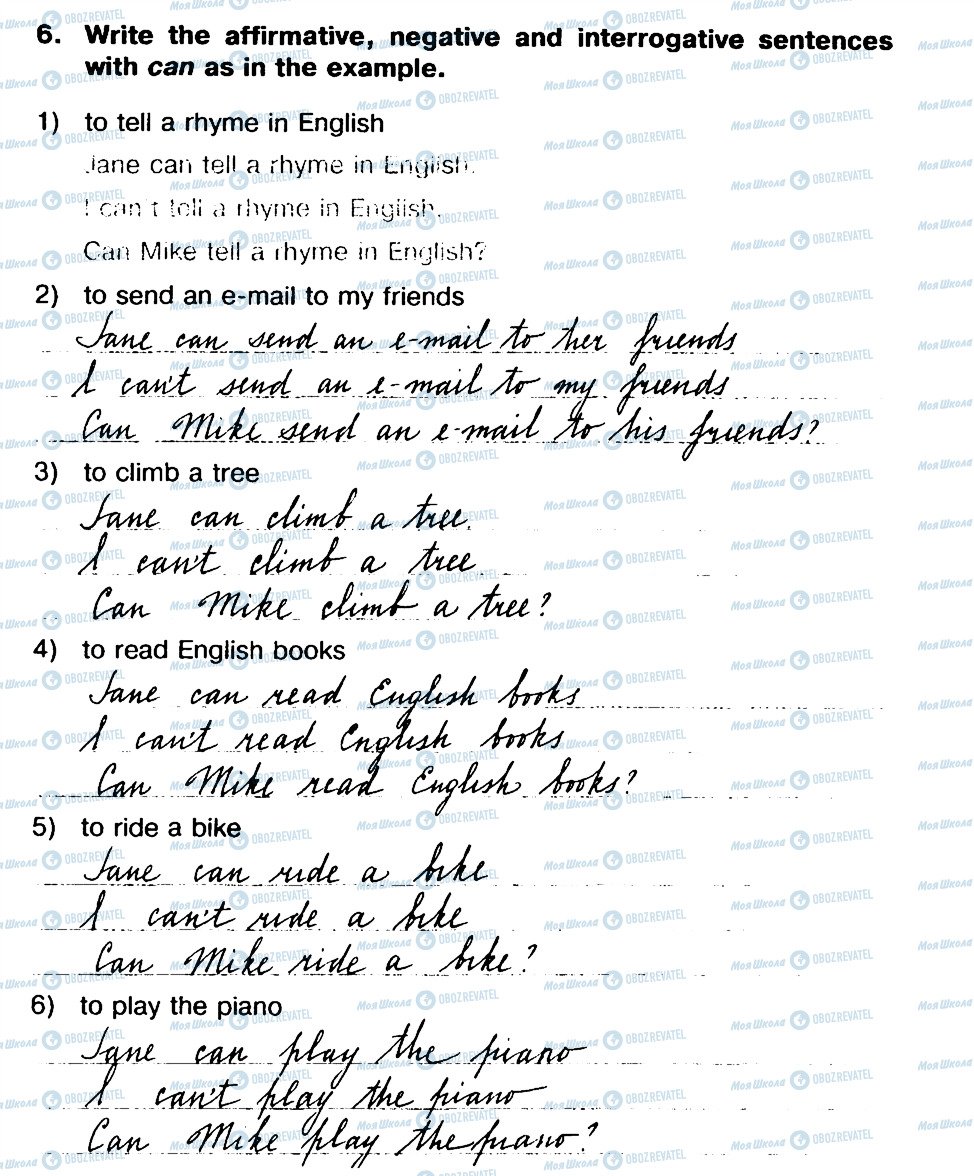 6. Write the affirmative, negative and interrogative sentences
with can as in the example.
1) to tell a rhyme in English
Jane can tell a rhyme in English.
I can't tell a rhyme in English.
Can Mike tell a rhyme in English?
2) to send an e-mail to my friends
Jane can send an e-mail to her friends
I can't send an e-mail to my friends
Can Mike send an e-mail to his friends?
3) to climb a tree
Jane can climb a tree.
I can't climb a tree
Can Mike climb a tree?
4) to read English books
Jane can read English books
I can't read English books
Can Mike read English books?
5) to ride a bike
Jane can ride a bike
I can't ride a bike
Can Mike ride a bike?
6) to play the piano
Jane can play the piano
I can't play the piano
Can Mike play the piano?
Моя Школа OBOZREVATEL